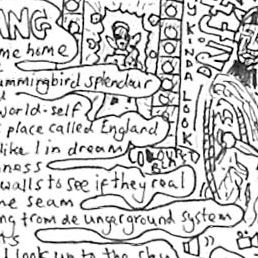 ING
me home
ummingbird splendour
world-self
s place called England
like I in dream
ness
walls to see if they real
ne seam
ng from de ungerground system
ts
I look up to the sky
U KINDA LOOK